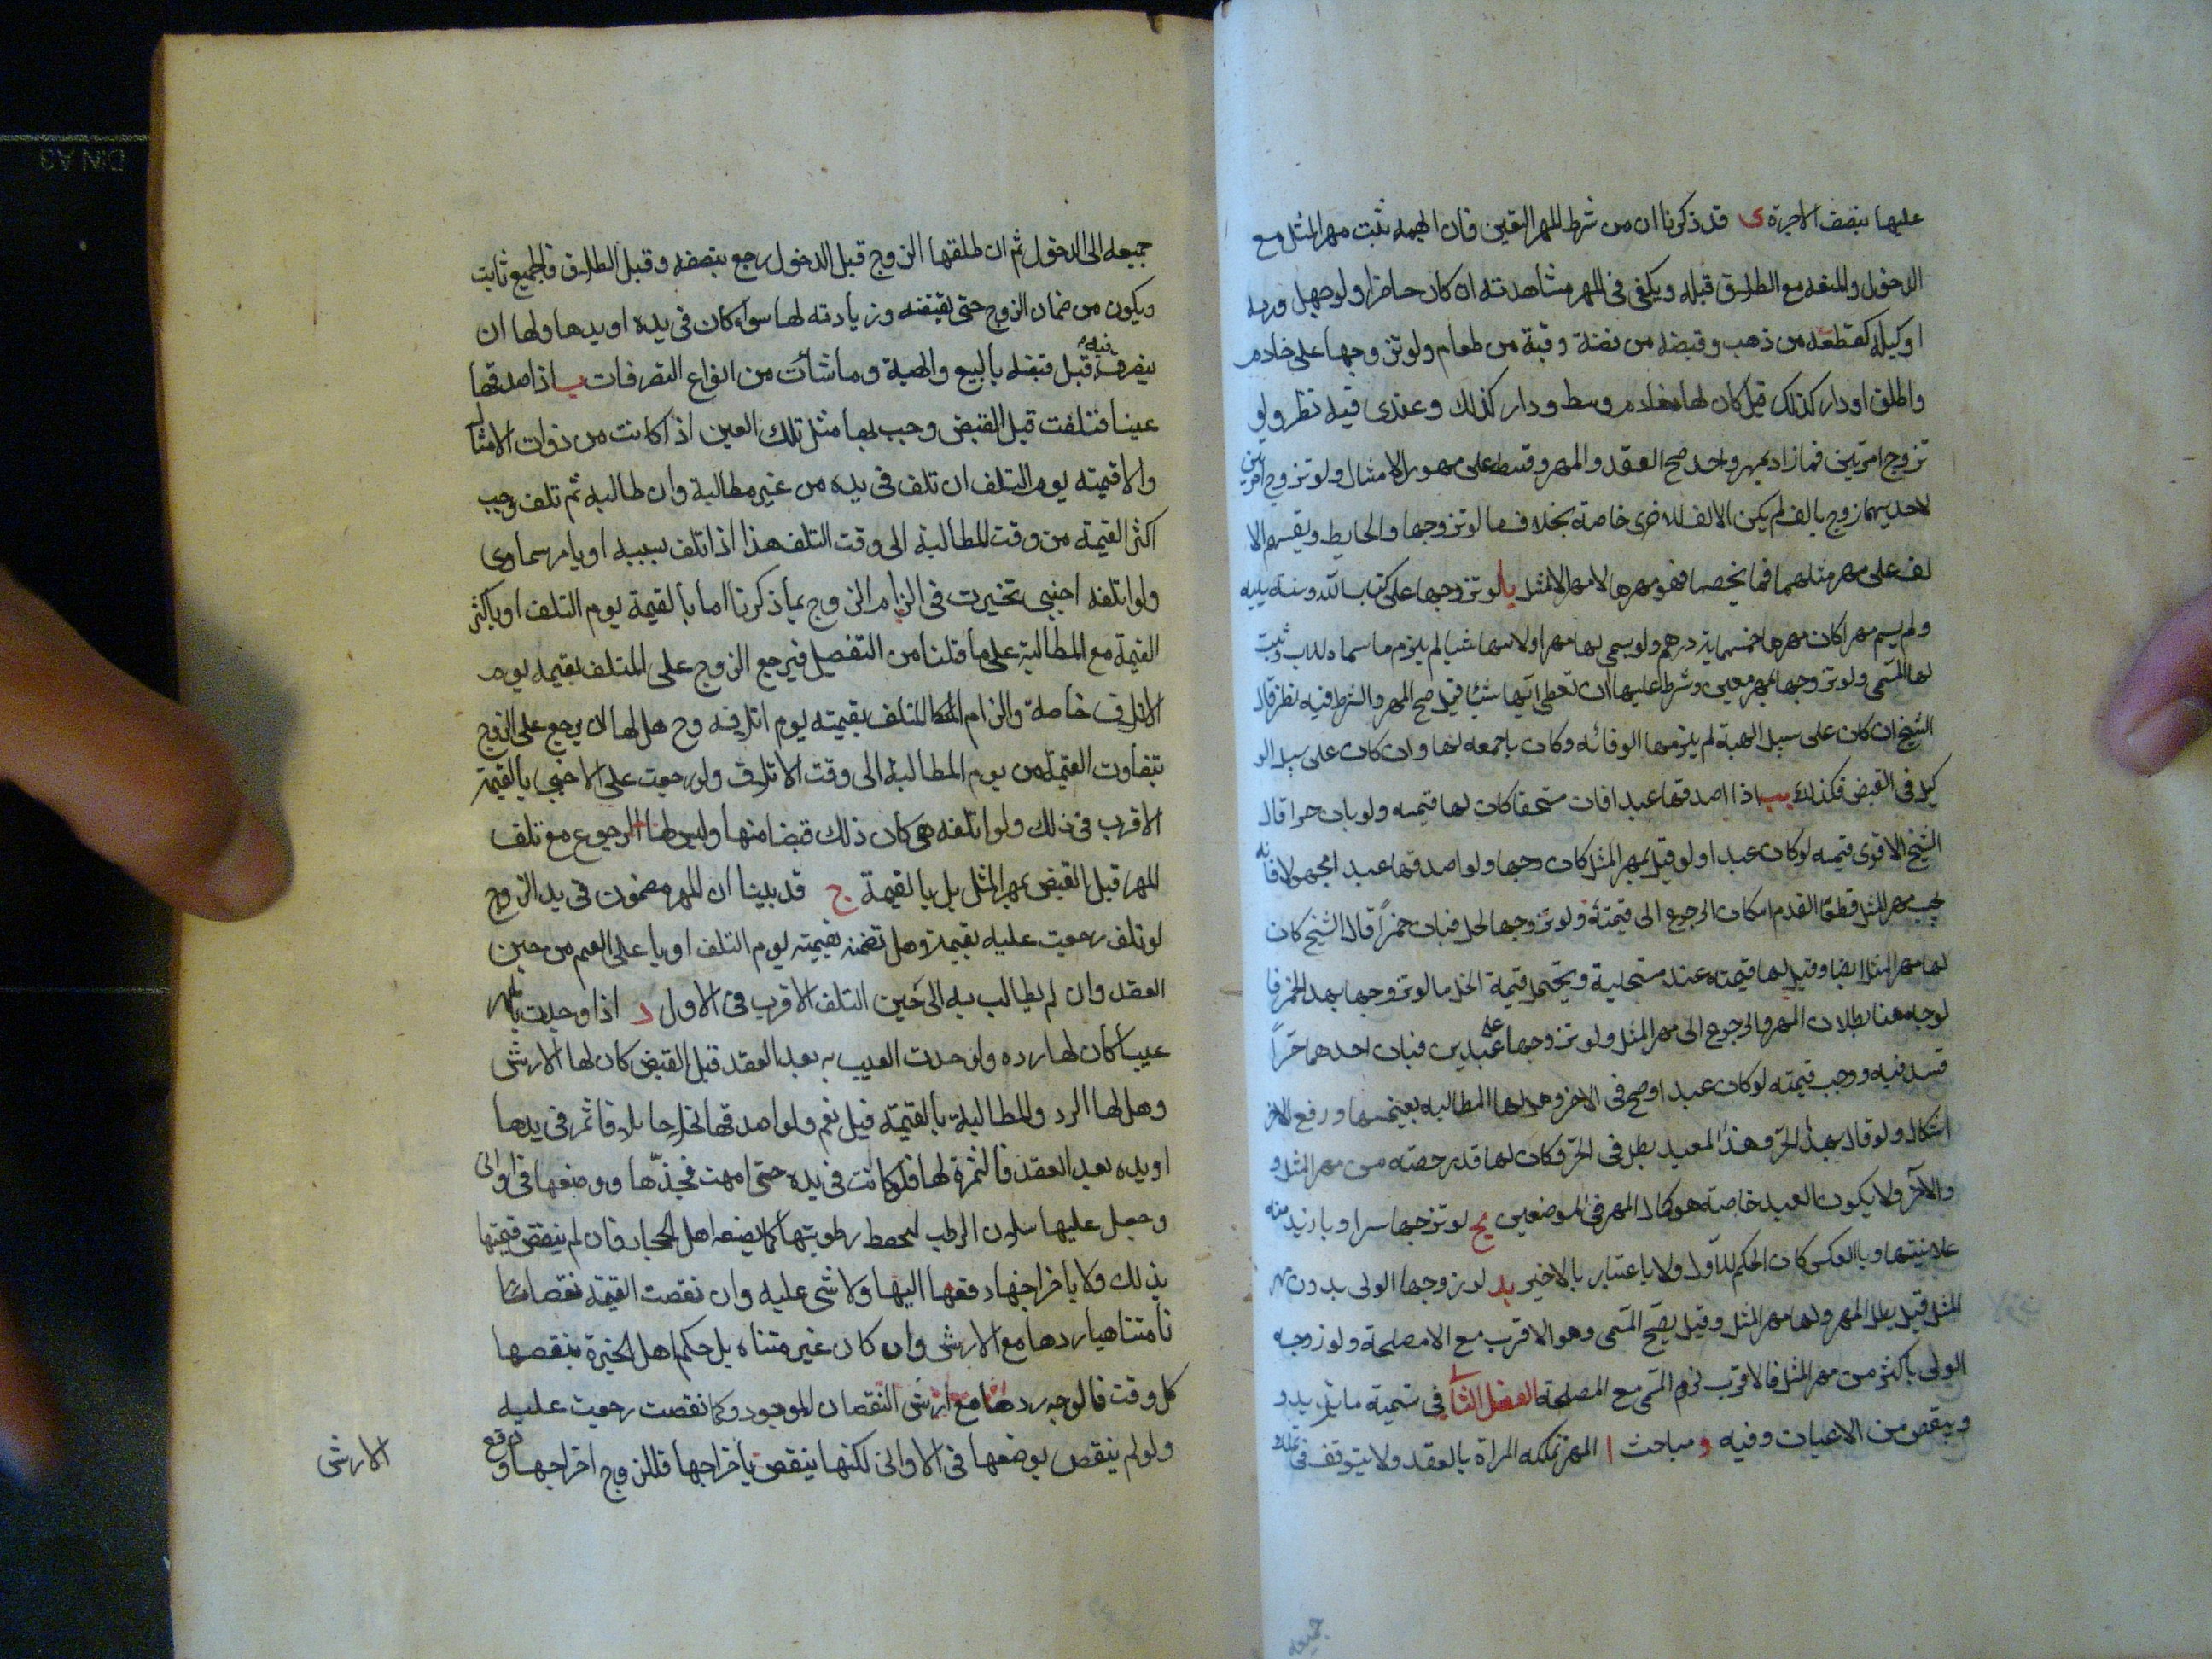 عليها بنصف الاجرة ى قد ذكرنا ان من شرط المهر التعين فان ابهمه ثبت مهر المثل مع
الدخول والمتعة مع الطلاق قبله ويكفى فى المهر مشاهدته ان كان حاضرا ولو جهل وزنه
او كيله كقطعة من ذهب وقبضه من فضة وقبة من طعام ولو تزوجها على خادم
واطلق او دار كذلك قيل كان لها خادم وسط ودار كذلك وعندى فيه نظر ولو
تزوج امرتين فما زاد بمهر واحد صح العقد والمهر وقسط على مهور الامثال ولو تزوج امرتين
لاحديهما زوج بالف لم يكن الالف للاخرى خاصة بخلاف ما لو تزوجها والحايط ويقسم الا
لف على مهر مثلهما فما يخصها فهو مهرها لا مهر المثل يا لو تزوجها على كتاب الله وسنة نبيه
ولم يسم مهرا كان مهرها خمسماية درهم ولو سمى لها مهرا ولابيها شيا لم يلزم ما سماه للاب وثبت
لها المسمى ولو تزوجها بمهر معين وشرط عليها ان تعطى ابيها شيئا قيل صح المهر والشرط فيه نظر قال
الشيخ ان كان على سبيل الهبة لم يلزمها الوفائه وكان باجمعه لها وان كان على سبيل الو
كيل فى القبض فكذلك يب اذا اصدقها عبدا فبان مستحقا كان لها قيمته ولو بان حرا قال
الشيخ الاقوى قيمته لو كان عبدا ولو قيل بمهر المثل كان وجها ولو اصدقها عبدا مجهولا فانه
يجب مهر المثل قطعا لعدم امكان الرجوع الى قيمته ولو تزوجها لخل فبان خمرا قال الشيخ كان
لها مهر المثل ايضا وقيل لها قيمته عند مستحليه ويحتمل قيمة الخل اما لو تزوجها بهذ الخمر فا
لوجه هنا بطلان المهر والرجوع الى مهر المثل ولو تزوجها على عبدين فبان احدهما حرا
فسد فيه ووجب قيمته لو كان عبدا وصح فى الاخر وهل لها المطالبه بقيمتها ورفع الاخر
اشكال ولو قال بهذا الحر وهذا العبد بطل فى الحر فكان لها قدر حصته من مهر المثل و
والاخر ولا يكون العبد خاصة هو كمال المهر فى الموضعين يج لو تزوجها سرا وبازيد منه
علانيتها وبالعكس كان الحكم للاول ولا باعتبار بالاخير يد لو زوجها الولى بدون مهر
المثل قيل يبطل المهر ولها مهر المثل وقيل يصح المسمى وهو الاقرب مع الامصلحة ولو زوجه
الولى باكثر من مهر المثل فالاقرب لزوم المسمى مع المصلحة الفصل الثانى فى تسمية ما يزيد و
وينقص من الاعيان وفيه و مباحث ا المهر تملكه المراة بالعقد ولا يتوقف فى تملك
جميعه
جميعه الى الدخول ثم ان طلقها الزوج قبل الدخول رجع بنصفه وقبل الطلاق فالجميع ثابت
ويكون من ضمان الزوج حتى تقبضه وزيادته لها سواء كان فى يده او يدها ولها ان
يتصرف فيه قبل قبضه بالبيع والهبة وما شائت من انواع التصرفات ب اذا اصدقها
عينا فتلفت قبل القبض وجب لها مثل تلك العين اذا كانت من ذوات الامثال
والا قيمته يوم التلف ان تلف فى يده من غير مطالبة وان طالبه ثم تلف وجب
اكثر القيمة من وقت المطالبة الى وقت التلف هذا اذا تلف بسببه او بامر سماوى
ولو اتلفه اجنبى تخيرت فى الزام الزوج بما ذكرنا اما بالقيمة يوم التلف او باكثر
القيمة مع المطالبة على ما قلنا من التفصيل فيرجع الزوج على المتلف بقيمه يوم
الاتلاف خاصة والزام المتلف بقيمته يوم اتلافه وح هل لها ان يرجع على الزوج
بتفاوت القيمة من يوم المطالبة الى وقت الاتلاف ولو رجعت على الاجنبى بالقيمة
الاقرب فى ذلك ولو اتلفه هى كان ذلك قبضا منها وليس لها الرجوع مع تلف
المهر قبل القبض بمهر المثل بل بالقيمة ج قد بينا ان المهر مضمون فى يد الزوج
لو تلف رجعت عليه بقيمة وهل تضمنه بقيمته يوم التلف او با على القيم من حين
العقد وان لم يطالب به الى حين التلف الاقرب فى الاول د اذا وجدت بالمهر
عيبا كان لها رده ولو حدث العيب به بعد العقد قبل القبض كان لها الارش
وهل لها الرد والمطالبة بالقيمة قيل نعم ولو اصدقها نخلا حايلا فاثمر فى يدها
او يده بعد العقد فالثمرة لها فلو كانت فى يده حتى امهت فجذها ووضعها فى اوانى
وجعل عليها سيلان الرطب ليحفظ رطوبتها كما يصنعه اهل الحجاز فان لم ينقص قيمتها
بذلك ولا باخراجها دفعها اليها ولا شى عليه وان نقصت القيمة نقصانا
نا متناهيا ردها مع الارش وان كان غير متناه بل حكم اهل الخبرة بنقصها
كل وقت فالوجه ردها مع ارش النقصان الموجود وكما نقصت رجعت عليه
ولو لم ينقص بوضعها فى الاوانى لكنها ينقص باخراجها فللزوج اخراجها ودفع
الارش